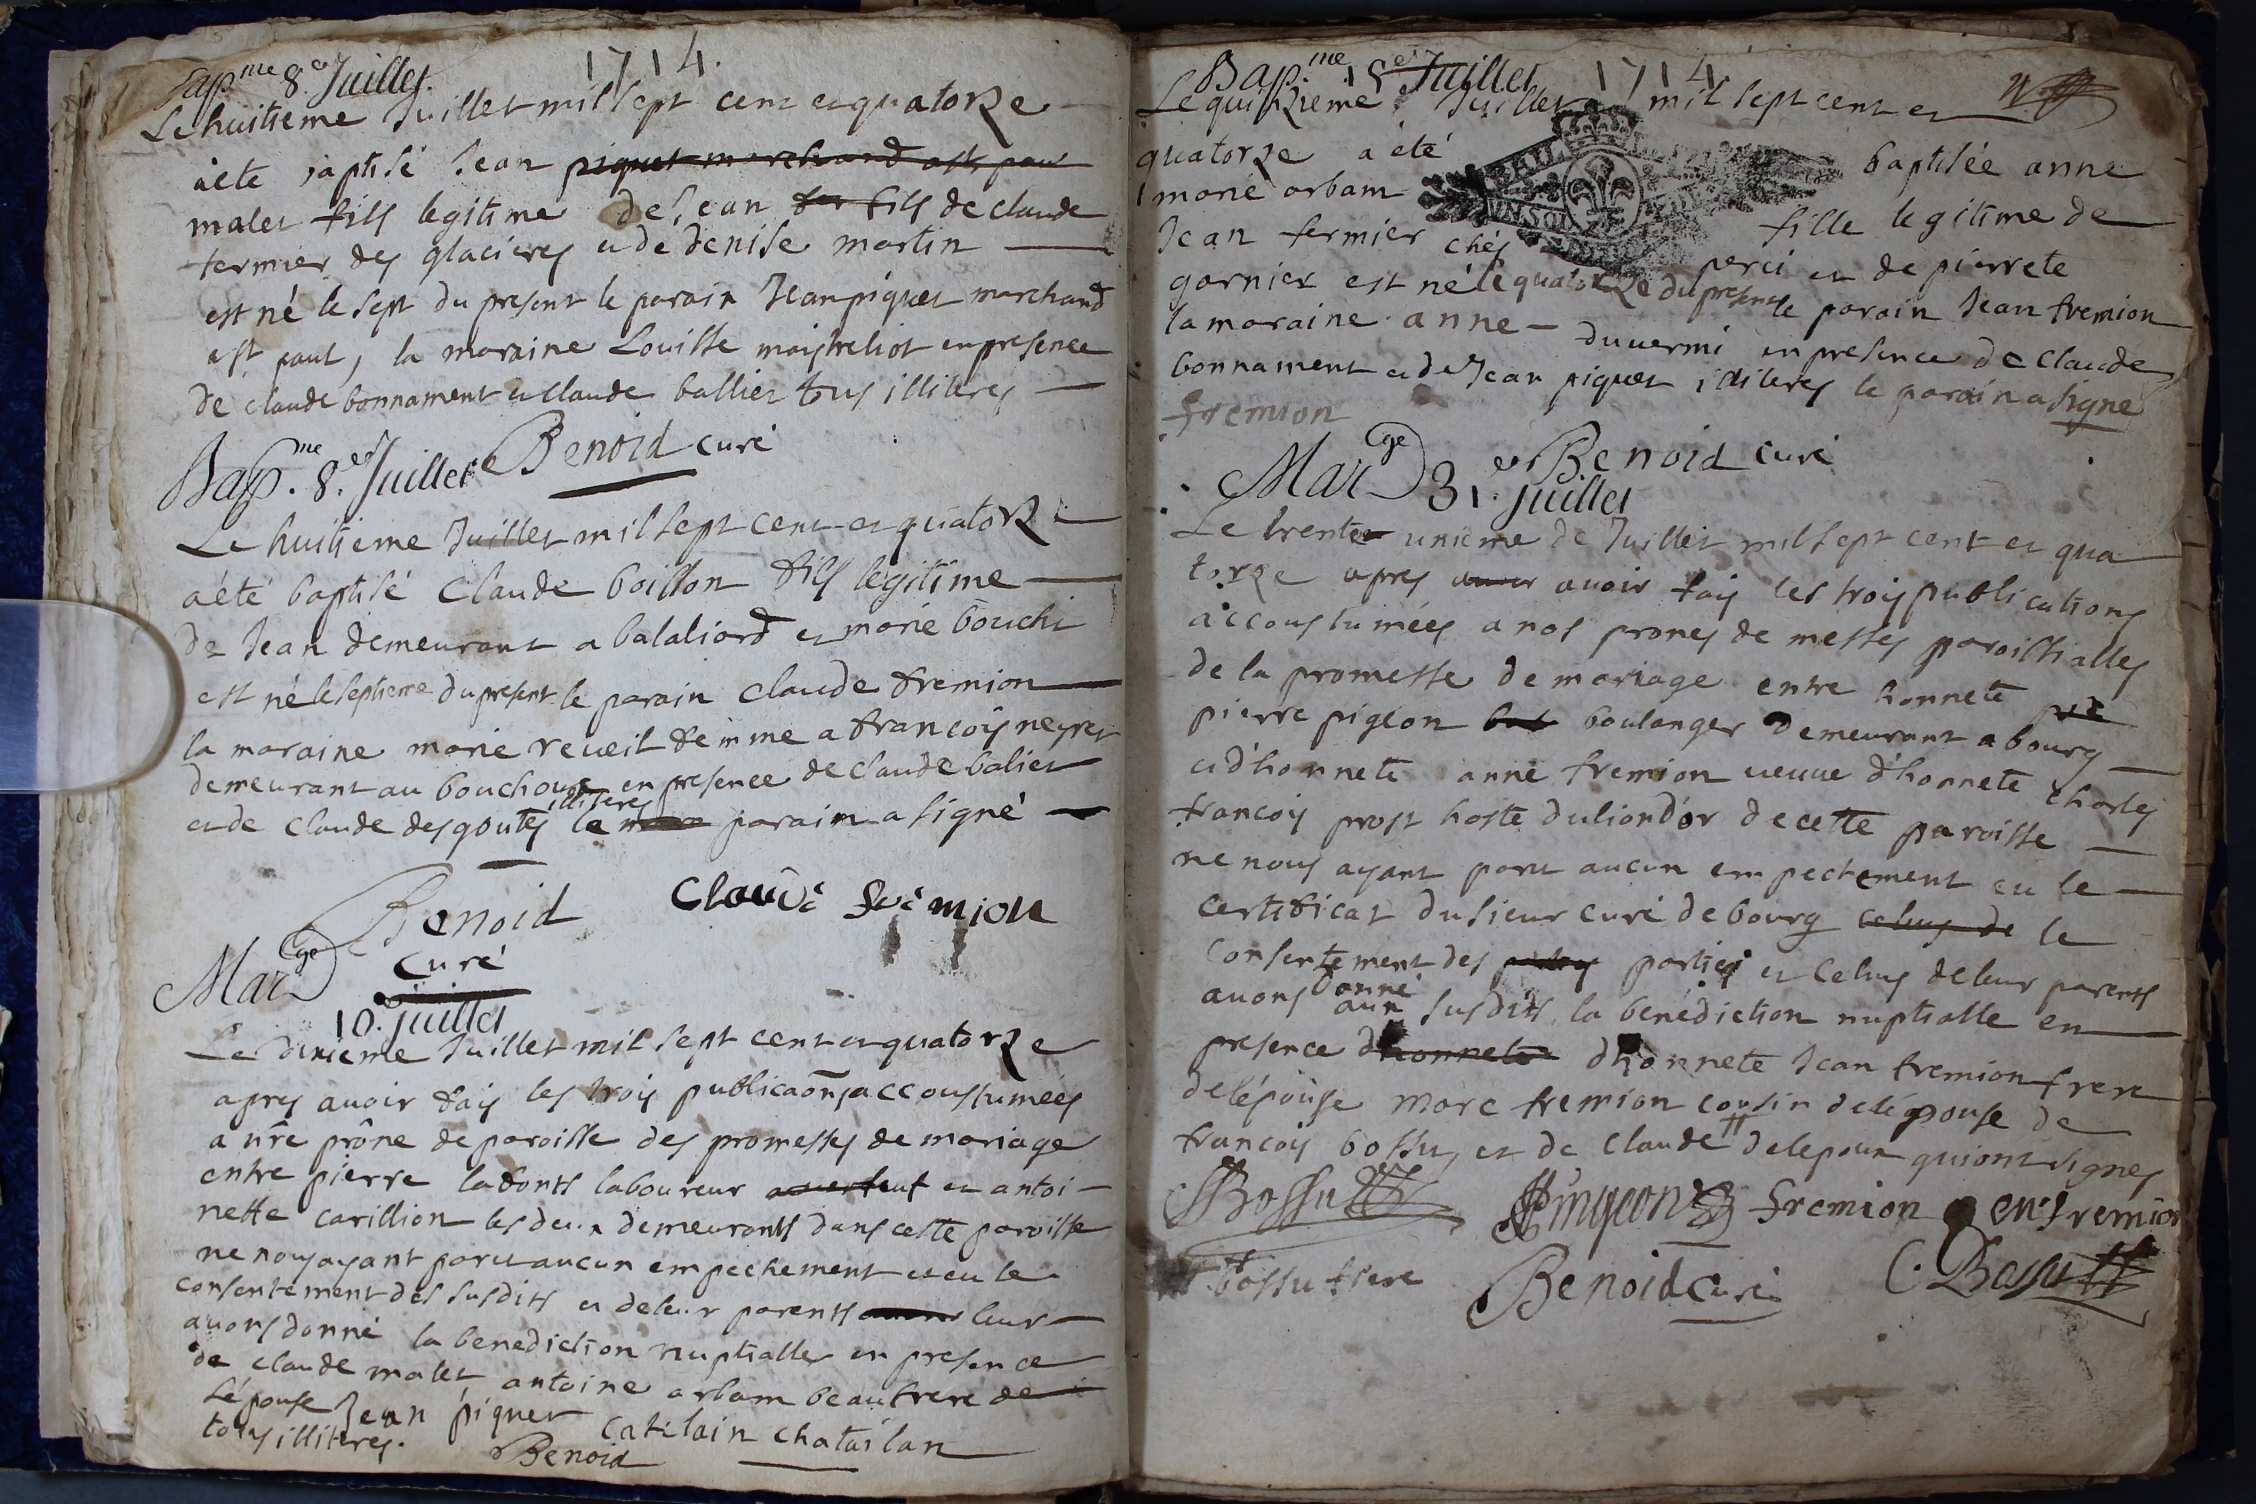 1714.
Bap.me 8.e Juillet.
Le huitieme Juillet mil sept cent et quatorze
a été baptisé Jean piquet marchand
malet fils legitime de Jean fils de claude
fermier des glacieres et de denise martin
est né le sept du present le parain Jean piquet marchand
a st paul, la maraine Louisse maistreliot en presence
de claude bonnament et claude ballier tous illiteres
Benoid curé
Bap.me 8.e Juillet
Le huitieme Juillet mil sept cent et quatorze
a été baptisé Claude boillon fils legitime
de Jean demeurant a balaliard et marie bouchi
est né le septieme du present le parain claude fremion
la maraine marie reveil femme a francois neyret
demeurant au bouchoux en presence de claude balier
et de claude desgoutes illiteres le parain a signé
Benoid
curé
Claude fremion
Mar.ge
10. Juillet
Le dixieme Juillet mil sept cent et quatorze
apres avoir fais les trois publicaons accoustumées
a nre prône de paroisse des promesses de mariage
entre pierre ladonts laboureur et antoi-
nette carillion les deux demeurants dans ceste paroisse
ne nous ayant paru aucun empechement et eu le
consentement des susdits et de leur parents leur
avons donné la benediction nuptialle en presence
de claude malet antoine arbam beaufrere de
l'épouse Jean piquet catelain chatailan
tous illiteres.
Benoid
Bap.me 15.e Juillet 1714
Le quinzieme Juillet mil sept cent et
quatorze a été baptisée anne
marie arbam fille legitime de
Jean fermier chés perci et de pierrete
garnier est né le quatorze du present le parain Jean fremion
la maraine anne duvermi en presence de claude
bonnament et de Jean piquet illiteres le parain a signe
fremion
Benoid curé
Mar.ge 31.e Juillet
Le trente unieme de Juillet mil sept cent et qua
torze apres avoir fais les trois publications
accoustumées a nos prones de messes paroissialles
de la promesse de mariage entre honnete
pierre pigeon boulanger demeurant a bourg
et d'honnete anne fremion veuve d'honnete charles
francois prost hoste du lion d'or de cette paroisse
ne nous ayant paru aucun empechement eu le
certificat du sieur curé de bourg celuy de le
consentement des parties et celuy de leur parents
avons donné aux susdits la benediction nuptialle en
presence d'honnete d'honnete Jean fremion frere
de l'épouse marc fremion cousin de l'épouse de
francois bossu, et de claude de lepoux qui ont signes
Bossu Pingeon fremion en. fremion
bossu frere Benoid curé C. Bossu